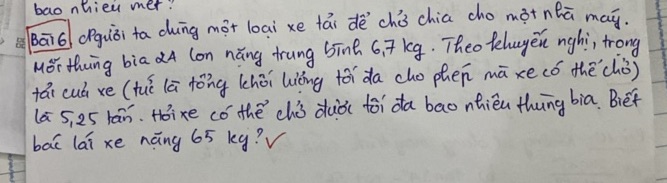 bao nhiêu mét?
Bài 6 Người ta dùng một loại xe tải để chở chia cho một nhà máy.
Mỗi thùng bia 24 lon nặng trung bình 6,7 kg. Theo khuyến nghị, trong
tải của xe (tức là tổng khối lượng tối đa cho phép mà xe có thể chở)
là 5,25 tấn. Hỏi xe có thể chở được tối đa bao nhiêu thùng bia. Biết
bác lái xe nặng 65 kg?